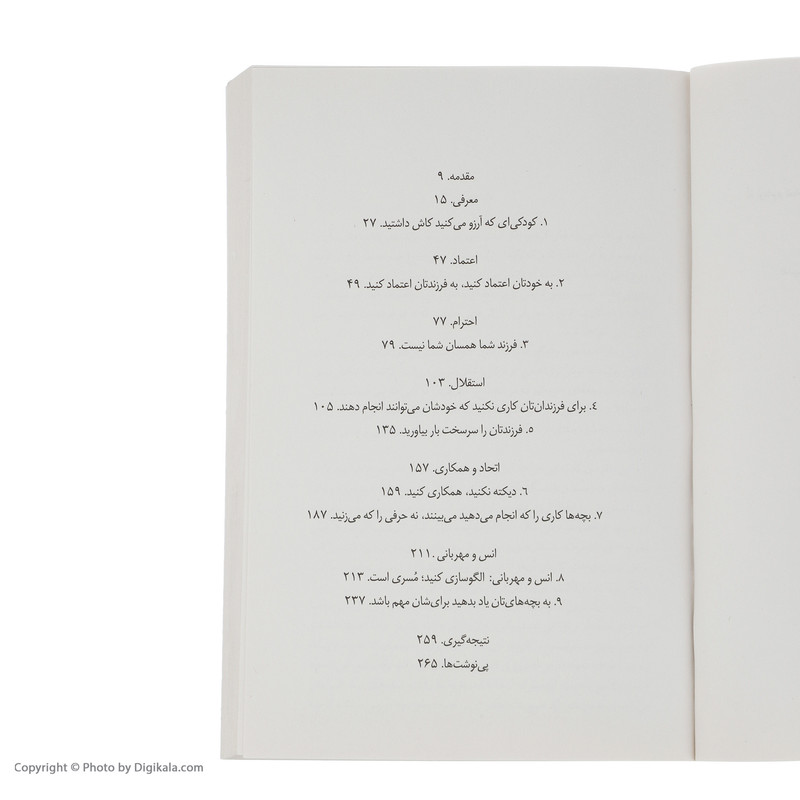 مقدمه. ۹
معرفی. ۱۵
۱. کودکی‌ای که آرزو می‌کنید کاش داشتید. ۲۷
اعتماد. ۴۷
۲. به خودتان اعتماد کنید، به فرزندتان اعتماد کنید. ۴۹
احترام. ۷۷
۳. فرزند شما همسان شما نیست. ۷۹
استقلال. ۱۰۳
٤. برای فرزندان‌تان کاری نکنید که خودشان می‌توانند انجام دهند. ۱۰۵
۵. فرزندتان را سرسخت بار بیاورید. ۱۳۵
اتحاد و همکاری. ۱۵۷
٦. دیکته نکنید، همکاری کنید. ۱۵۹
۷. بچه‌ها کاری را که انجام می‌دهید می‌بینند، نه حرفی را که می‌زنید. ۱۸۷
انس و مهربانی .۲۱۱
۸. انس و مهربانی: الگوسازی کنید؛ مُسری است. ۲۱۳
۹. به بچه‌های‌تان یاد بدهید برای‌شان مهم باشد. ۲۳۷
نتیجه‌گیری. ۲۵۹
پی‌نوشت‌ها. ۲۶۵
Copyright © Photo by Digikala.com